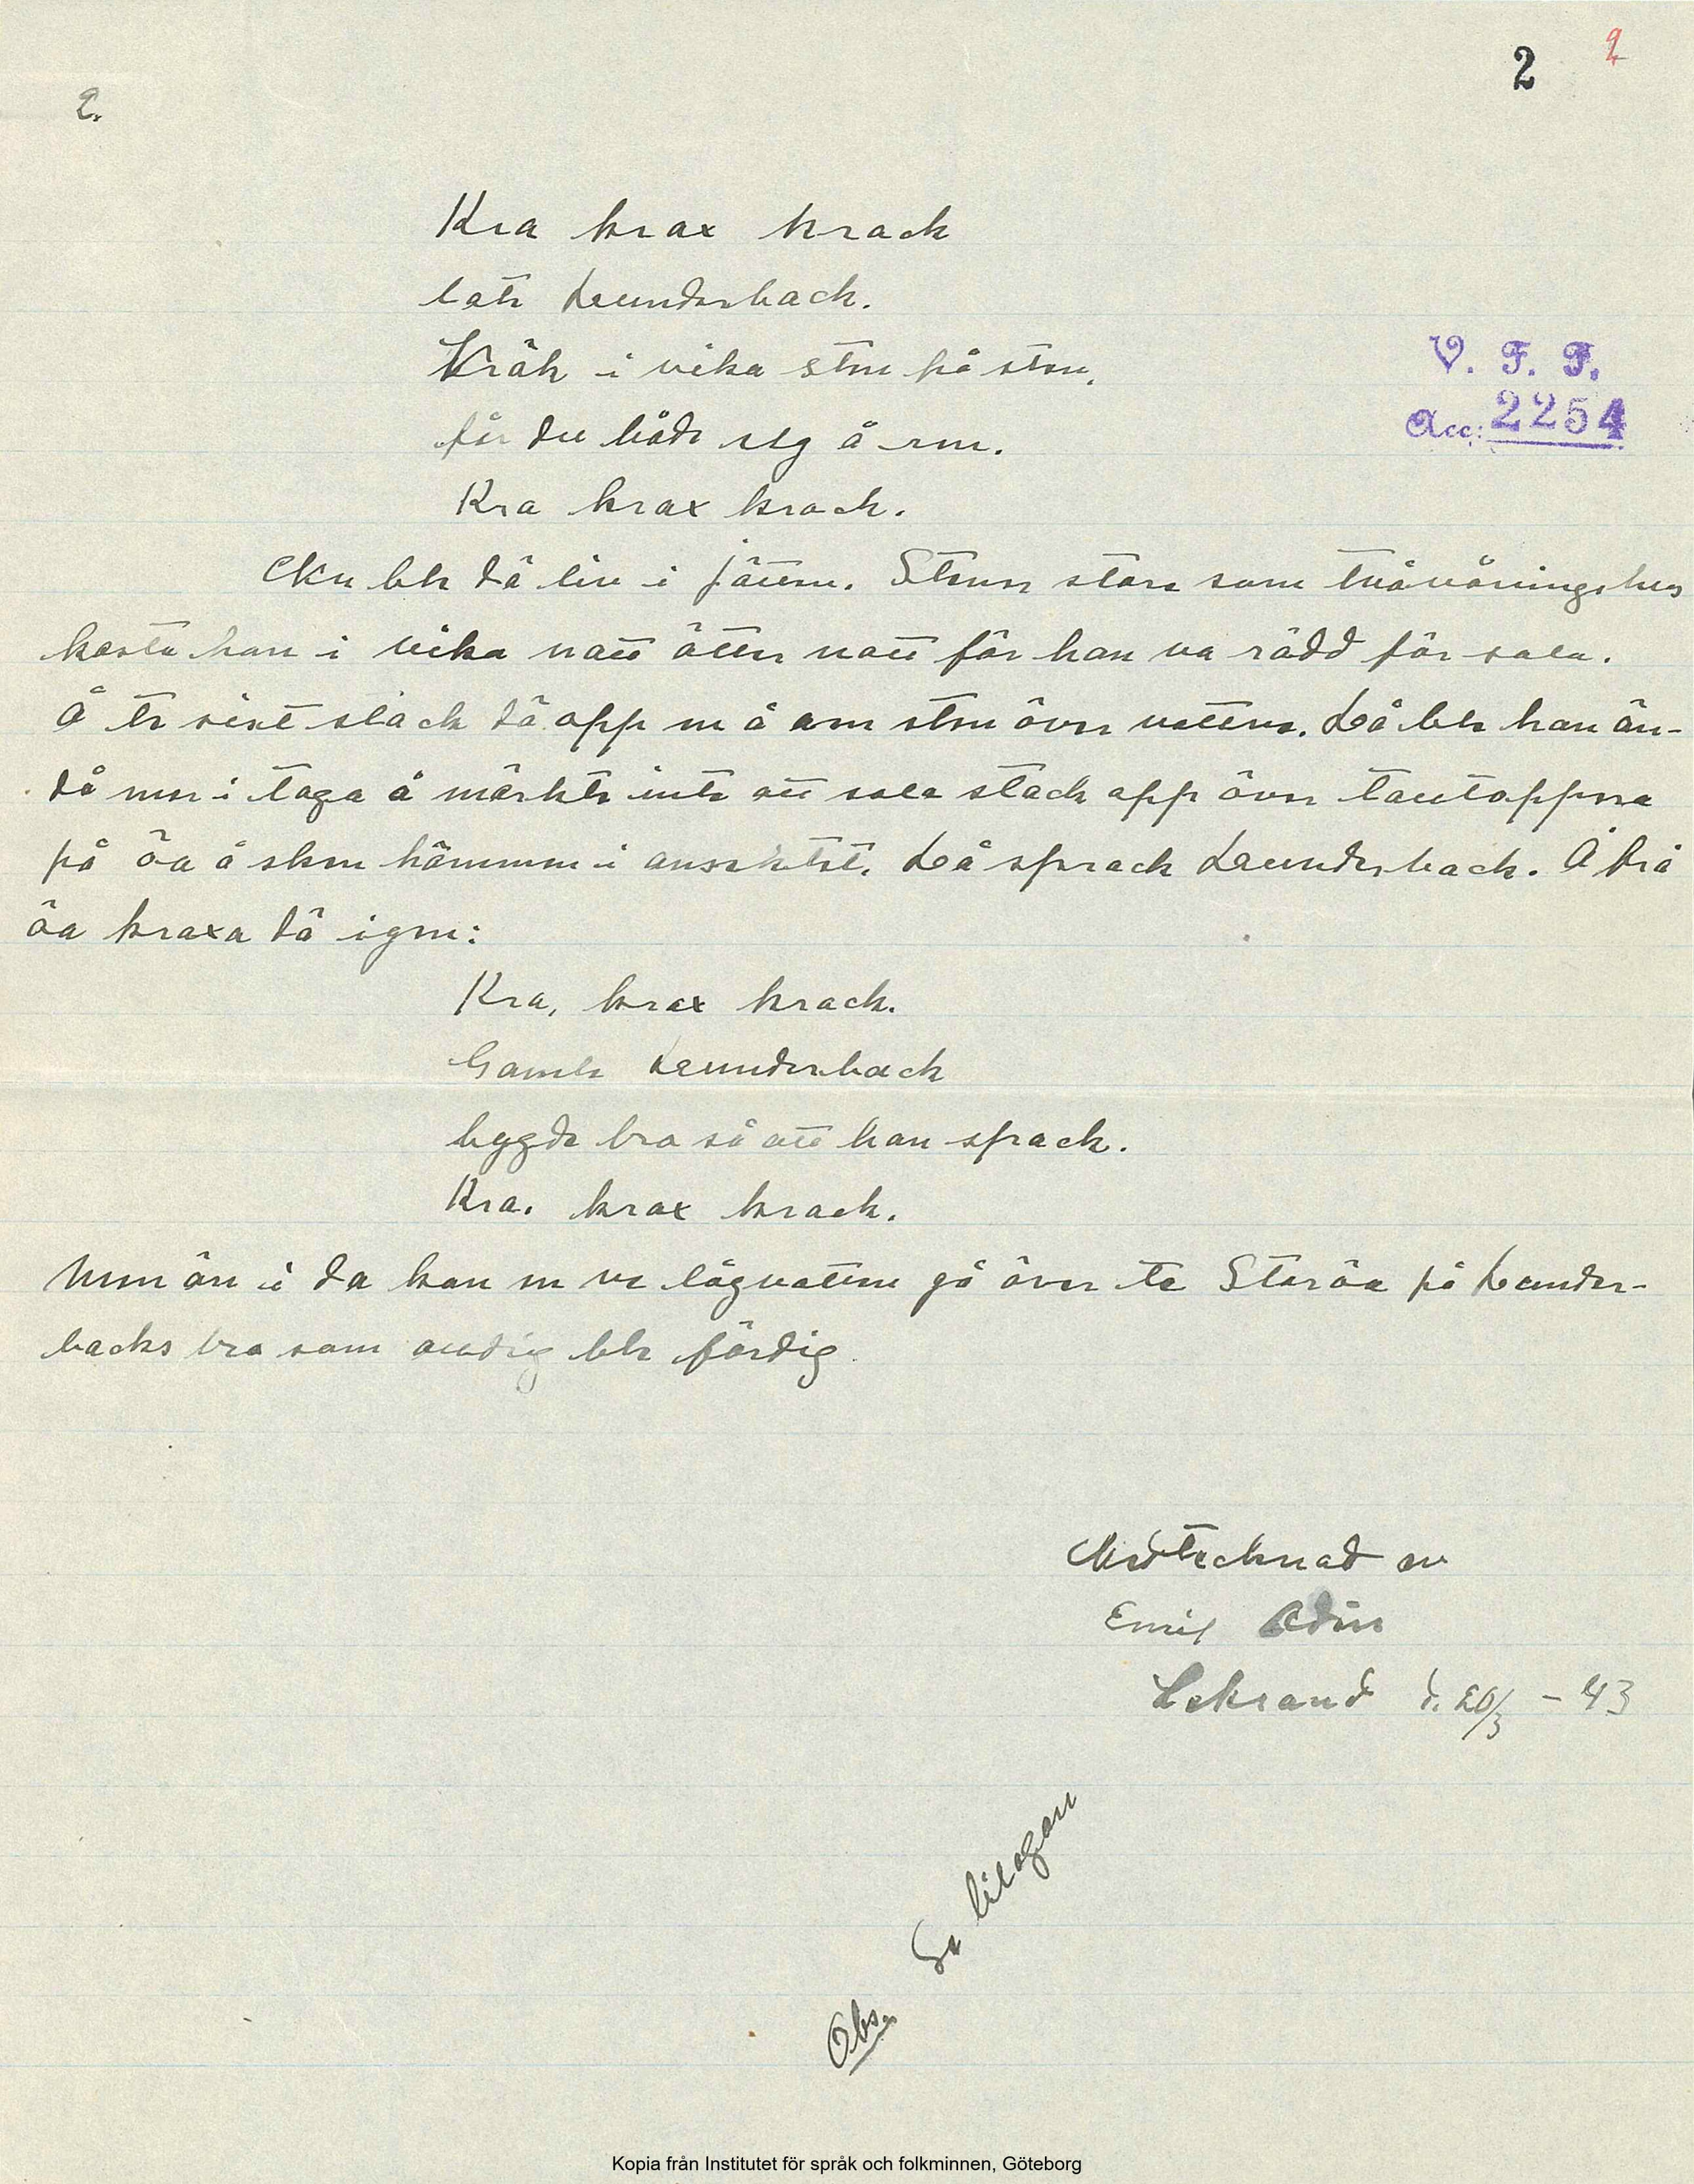 2 2
2.
Kra krax krack
late Dunderback.
Kräk i vika sten på sten,
får du både älg å ren.
Kra krax krack.
Nu ble dä liv i jätten. Stener stora som tvåvåningshus
kasta han i vika natt ätter natt för han va rädd för sola.
Å te sixt stack dä opp en å ann sten över vattene. Då ble han än-
då mer i taga å märkte inte att sola stack opp över talltoppera
på öa å sken hännem i ansektet. Då sprack Dunderback. Å frå
öa kraxa dä igen:
Kra, krax krack.
Gamle Dunderback
bygde bro så att han sprack.
Kra, krax krack.
Men än i da kan en ve lågvatten gå över te Storöa på Dunder-
backs bro som aldrig ble färdig.
V. F. F.
Acc: 2254
Nedtecknad av
Emil Odin
Leksand d. 20/3 - 43
Obs. Se bilagan
Kopia från Institutet för språk och folkminnen, Göteborg